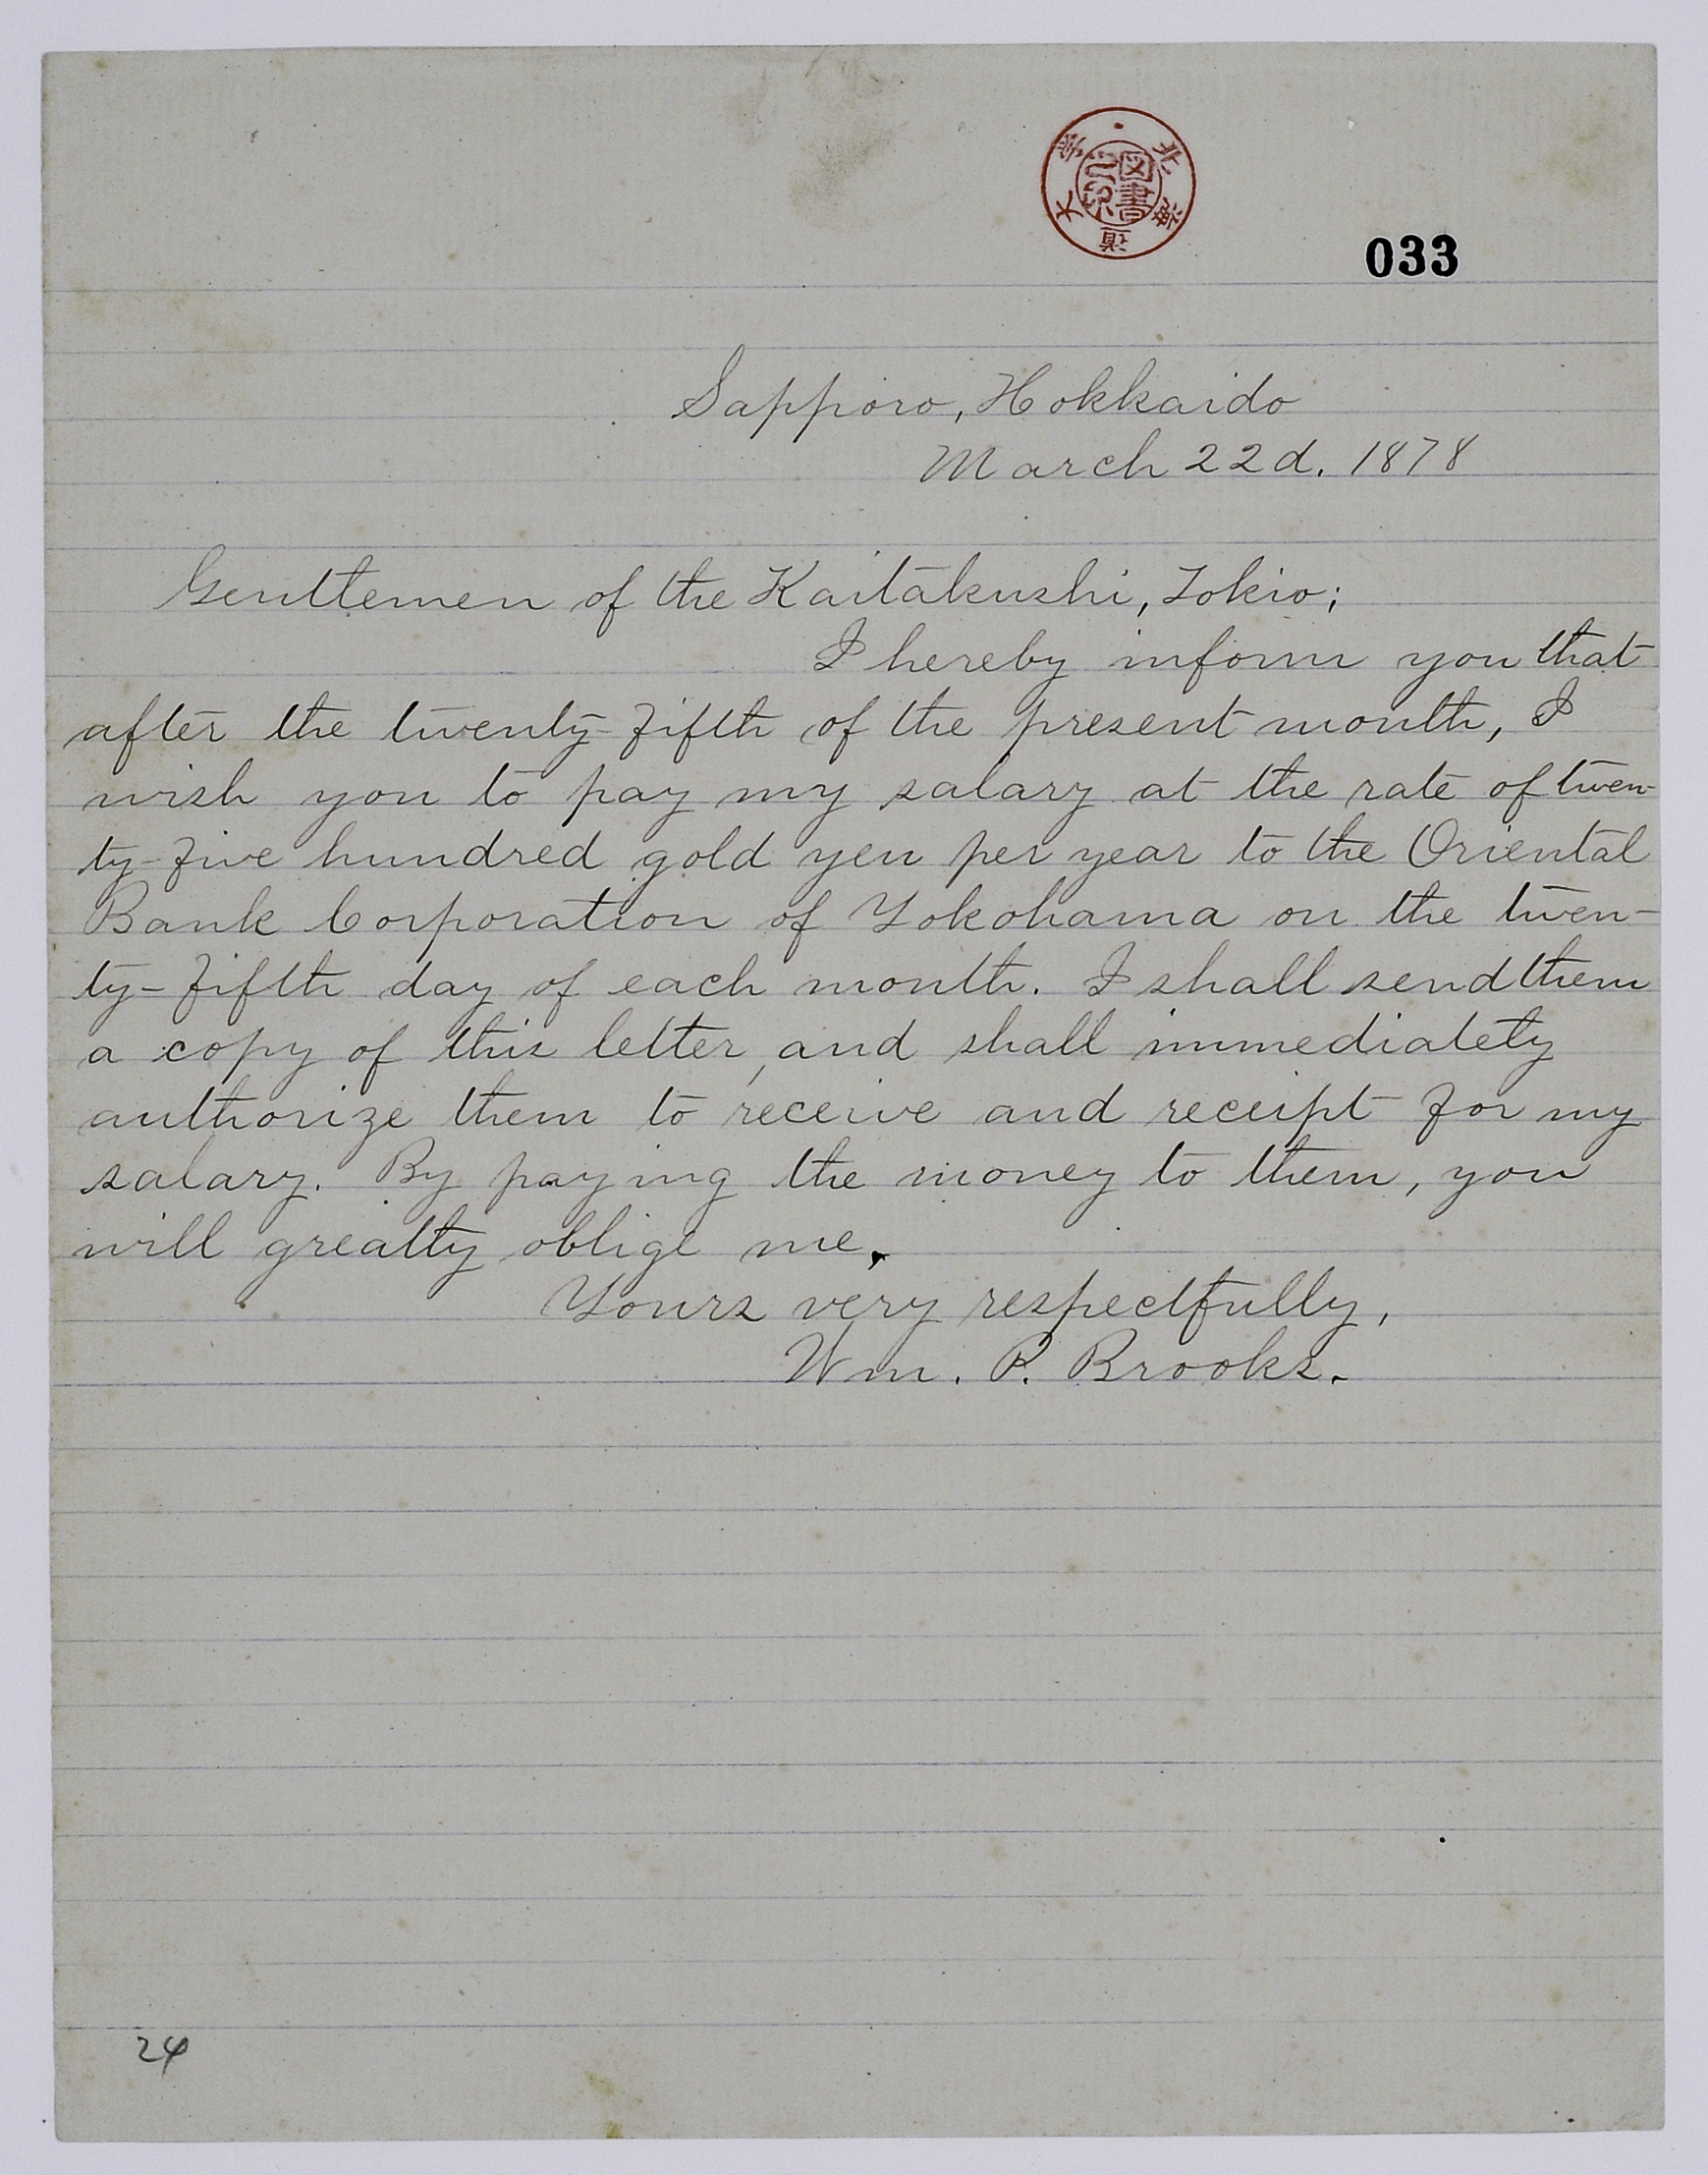 北海道大学
図書之印
033
Sapporo, Hokkaido
March 22d. 1878
Gentlemen of the Kaitakushi, Tokio;
I hereby inform you that
after the twenty-fifth of the present month, I
wish you to pay my salary at the rate of twen-
ty-five hundred gold yen per year to the Oriental
Bank Corporation of Yokohama on the twen-
ty-fifth day of each month. I shall send them
a copy of this letter, and shall immediately
authorize them to receive and receipt for my
salary. By paying the money to them, you
will greatly oblige me.
Yours very respectfully,
Wm. P. Brooks.
24